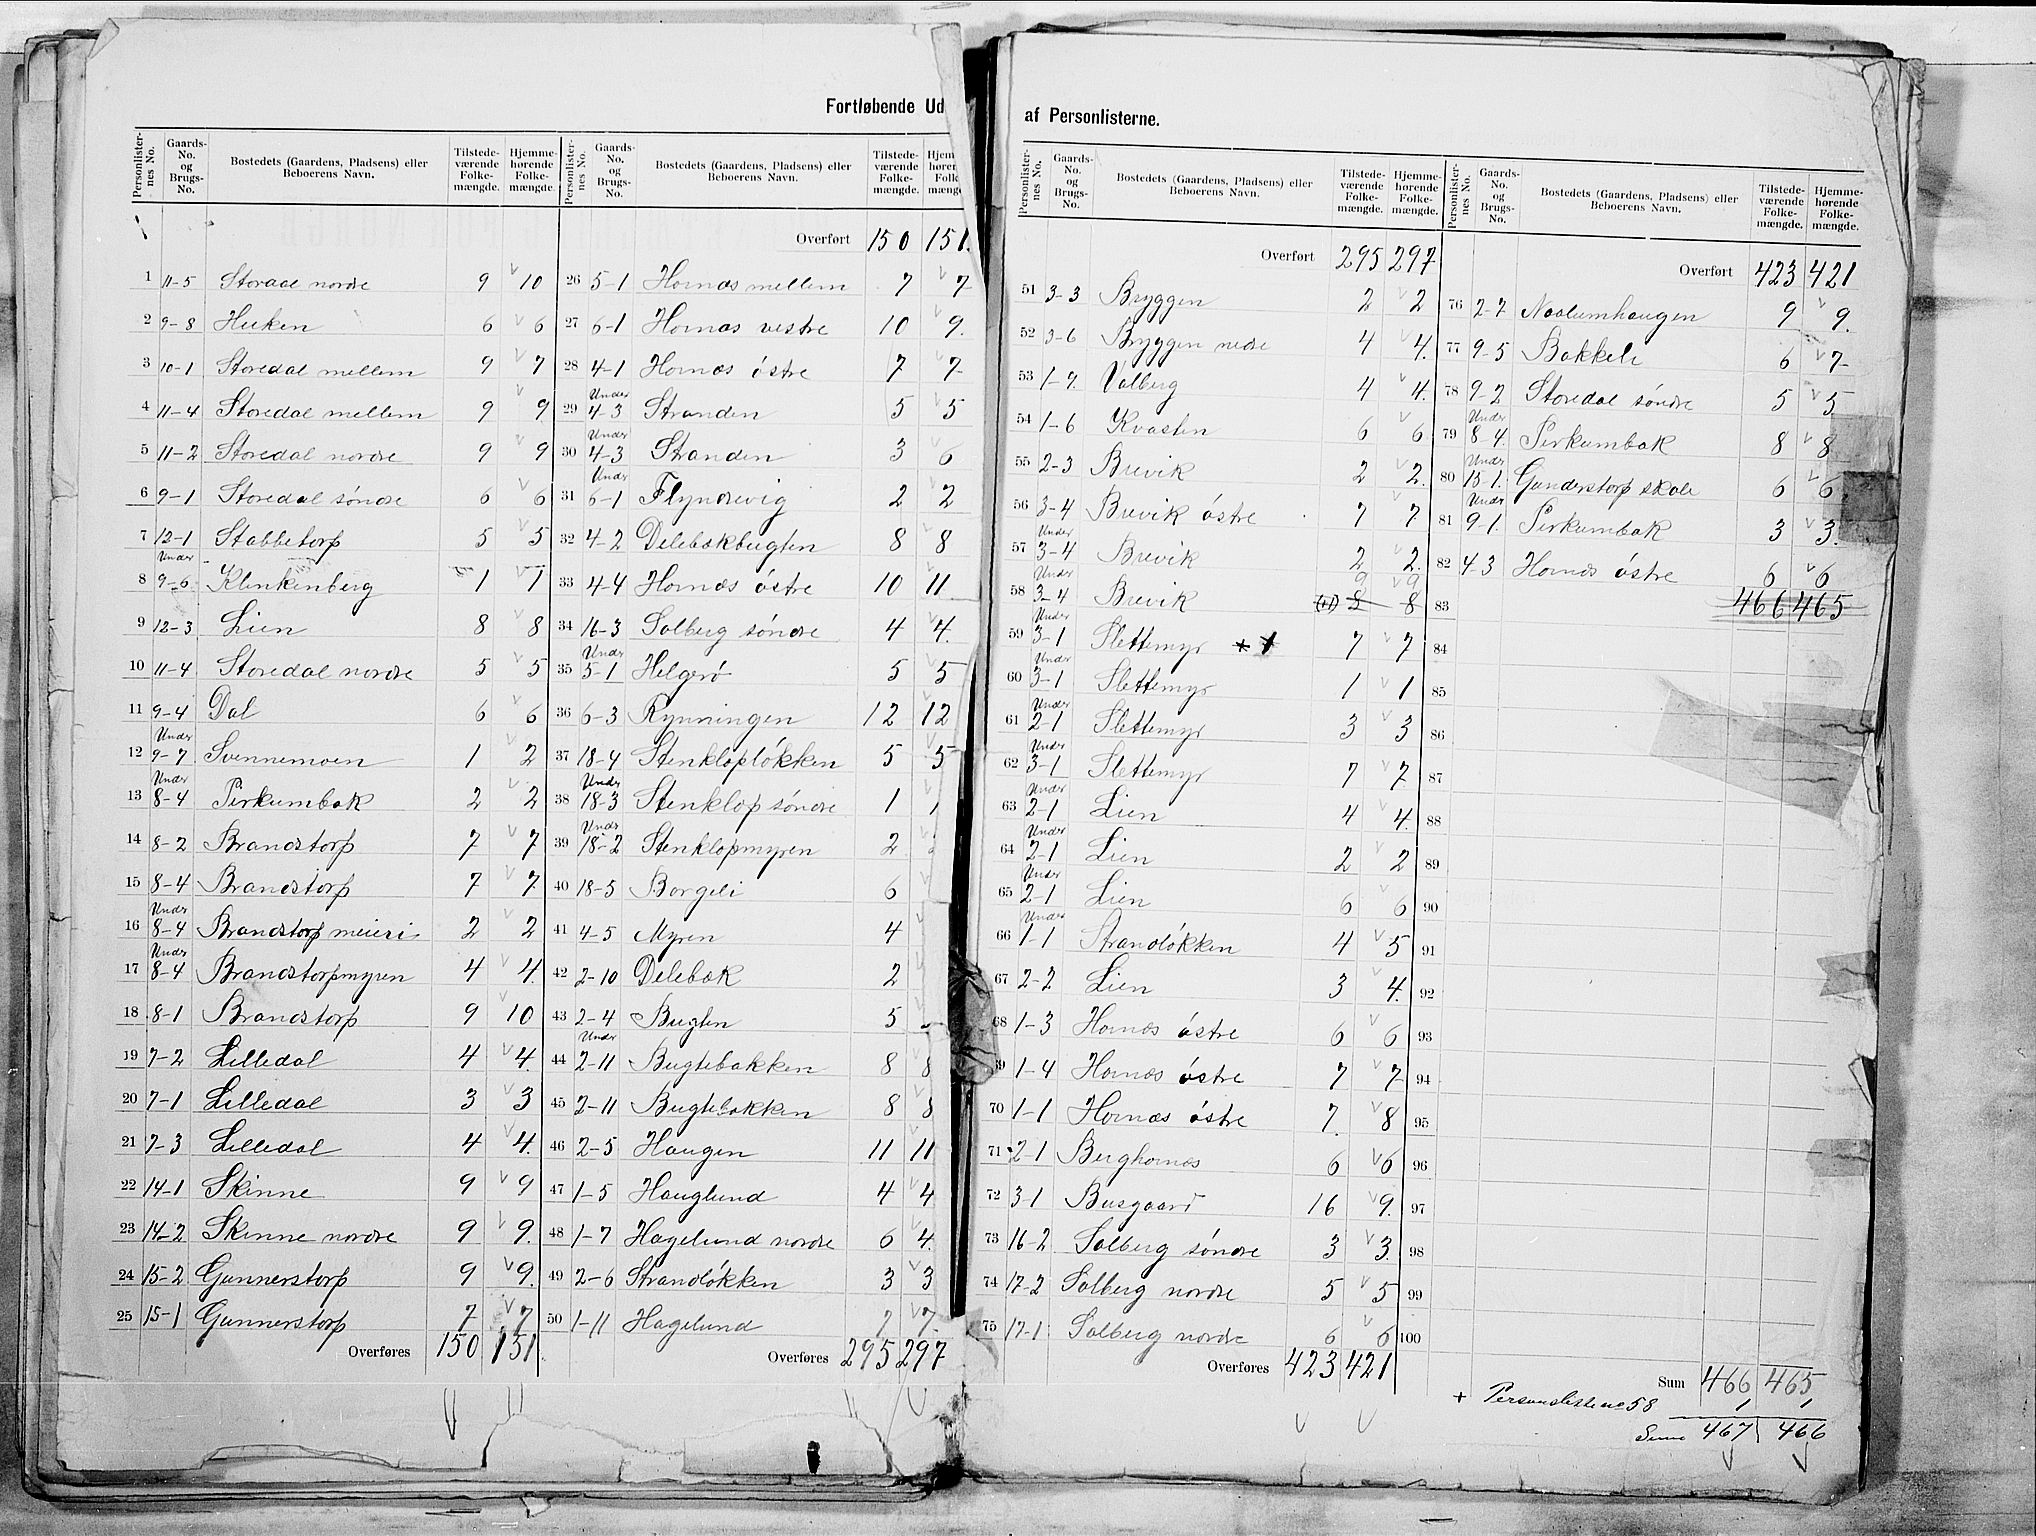 Fortløbende Ud
Personlister-nes No. | Gaards-No. og Brugs-No. | Bostedets (Gaardens, Pladsens) eller Beboerens Navn. | Tilstede-værende Folke-mængde. | Hjemme-hørende Folke-mængde.
1 11-5 Storaal nordre 9 10
2 9-8 Huken 6 6
3 10-1 Storedal mellem 9 7
4 11-4 Storedal mellem 9 9
5 11-2 Storedal nordre 9 9
6 9-1 Storedal söndre 6 6
7 12-1 Stabbetorp 5 5
8 Under 9-6 Klinkenberg 1 1
9 12-3 Lien 8 8
10 11-4 Storedal nordre 5 5
11 9-4 Dal 6 6
12 Under 9-7 Svennemoen 1 2
13 Under 8-4 Pirkumbæk 2 2
14 8-2 Brandstorp 7 7
15 8-4 Brandstorp 7 7
16 Under 8-4 Brandstorp meieri 2 2
17 Under 8-4 Brandstorpmyren 4 4.
18 8-1 Brandstorp 9 10
19 7-2 Lilledal 4 4.
20 7-1 Lilledal 3 3
21 7-3 Lilledal 4 4.
22 14-1 Skinne 9 9
23 14-2 Skinne nordre 9 9.
24 15-2 Gunnerstorp 9 9.
25 15-1 Gunnerstorp 7 7
Overføres 150 151.
Personlister-nes No. | Gaards-No. og Brugs-No. | Bostedets (Gaardens, Pladsens) eller Beboerens Navn. | Tilstede-værende Folke-mængde. | Hjem
Overført 150 151.
26 5-1 Hornæs mellem 7 7
27 6-1 Hornæs vestre 10 9.
28 4-1 Hornæs östre 7 7
29 Under 4-3 Stranden 5 5
30 Under 4-3 Standen 3 6
31 Under 6-1 Flyndrevig 2 2
32 4-2 Delebækbugten 8 8
33 4-4 Hornæs östre 10 11
34 16-3 Solberg söndre 4 4.
35 Under 5-1 Helgerö 5 5
36 6-3 Rynningen 12 12
37 18-4 Stenklopløkken 5 5
38 Under 18-3 Stenklop söndre 1 1
39 Under 18-2 Stenklopmyren 2
40 18-5 Borgeli 6
41 4-5 Myren 4
42 2-10 Delebæk 2
43 2-4 Bugten 5
44 Under 2-11 Bugtebakken 8 8
45 2-11 Bugtebakken 8 8
46 2-5 Haugen 11 11
47 1-5 Hauglund 4 4
48 1-7 Hagelund nordre 6 4.
49 2-6 Strandlökken 3 3
50 1-11 Hagelund 7 7.
Overføres 295 297
af Personlisterne.
Personlister-nes No. | Gaards-No. og Brugs-No. | Bostedets (Gaardens, Pladsens) eller Beboerens Navn. | Tilstede-værende Folke-mængde. | Hjemme-hørende Folke-mængde.
Overført 295 297
51 3-3 Bryggen 2 2
52 3-6 Bryggen nedre 4 4.
53 1-9 Valberg 4 4.
54 1-6 Kvasten 6 6
55 2-3 Brevik 2 2.
56 3-4 Brevik östre 7 7
57 Under 3-4 Brevik 2 2.
58 Under 3-4 Brevik 8 8 9 9
59 Under 3-1 Slettemyr * 1 7 7
60 Under 3-1 Slettemyr 1 1
61 Under 2-1 Slettemyr 3 3
62 Under 3-1 Slettemyr 7 7
63 Under 2-1 Lien 4 4.
64 Under 2-1 Lien 2 2
65 Under 2-1 Lien 6 6
66 Under 1-1 Strandlökken 4 5
67 2-2 Lien 3 4.
68 1-3 Hornæs östre 6 6
69 1-4 Hornæs östre 7 7
70 1-1 Hornæs östre 7. 8
71 2-1 Berghornæs 6 6
72 3-1 Busgaard 16 9.
73 16-2 Solberg söndre 3 3.
74 17-2 Solberg nordre 5 5
75 17-1 Solberg nordre 6 6
Overføres 423 421
Personlister-nes No. | Gaards-No. og Brugs-No. | Bostedets (Gaardens, Pladsens) eller Beboerens Navn. | Tilstede-værende Folke-mængde. | Hjemme-hørende Folke-mængde.
Overført 423 421
76 2-7 Naalumhaugen 9 9.
77 9-5 Bakkeli 6 7
78 9-2 Storedal söndre 5 5
79 Under 8-4. Pirkumbæk 8 8
80 Under 15-1. Gunderstorp skole 6 6
81 Under 9-1. Pirkumbæk 3 3.
82 4-3 Hornæs östre 6 6
83 466 465
84
85
86
87
88
89
90
91
92
93
94
95
96
97
98
99
100
Sum 466 465
+ Personsliste no 58 1 1
Sum 467 466